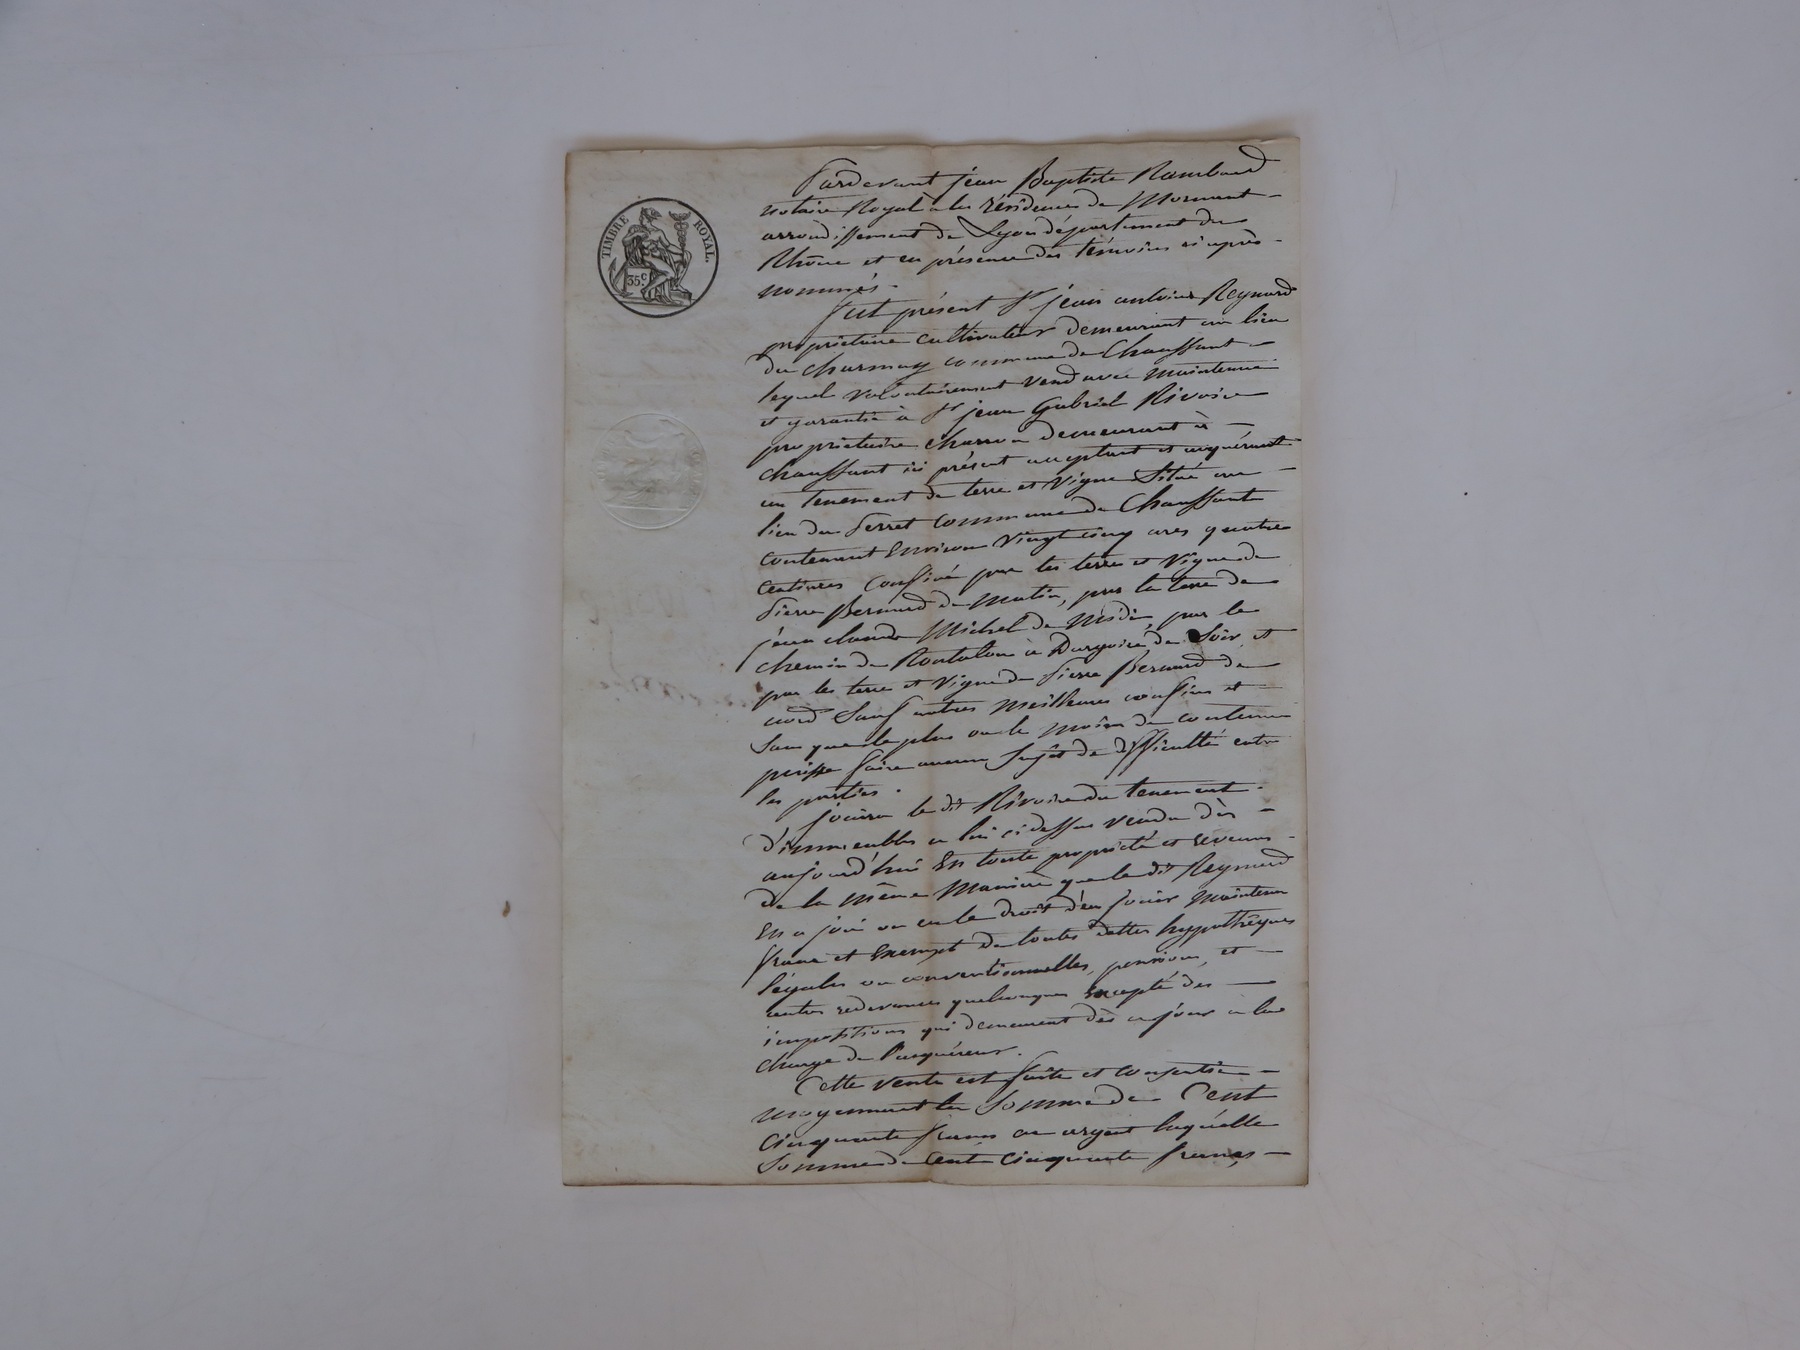 TIMBRE ROYAL.
35c
Pardevant jean Baptiste Rambaud
notaire Royal à la résidence de Mornant
arrondissement de Lyon département du
Rhône et en présence des témoins ci après
nommés.
fut présent sr jean antoine Reynard
propriétaire cultivateur demeurant au lieu
du charmay commune de Chaussant
lequel volontairement vend avec maintenue
et garantie à sr jean Gabriel Rivoire
propriétaire charron demeurant à
chaussant ici présent acceptant et acquérant
un tenement de terre et vigne Situé au
lieu du Perret commune de Chaussant
contenant Environ vingt cinq ares quatre
centiares confiné par les terre et vigne de
Pierre Bernard de matin, par la terre de
jean claude Michel de midi, par le
chemin de Rontalon à Dargoire de Soir, et
par les terre et vigne de Pierre Bernard de
nord Sauf autres meilleures confins et
Sans que le plus ou le moins de contenue
puisse faire aucun Sujet de difficulté entre
les parties.
jouira le dit Rivoire du tenement
d'immeubles a lui ci dessus vendu dès
aujourd'hui En toute propriété et revenus
de la même manière que le dit Reynard
En a joui ou eu le droit d'en jouir maintenu
franc et Exempt de toutes dettes hypothèques
légales ou conventionnelles, pensions, et
autres redevances quelconques Excepté des
impositions qui demeurent dès ce jour à la
charge de l'acquéreur.
Cette vente est faite et consentie
moyennant la Somme de Cent
cinquante francs en argent laquelle
Somme de Cent cinquante francs,